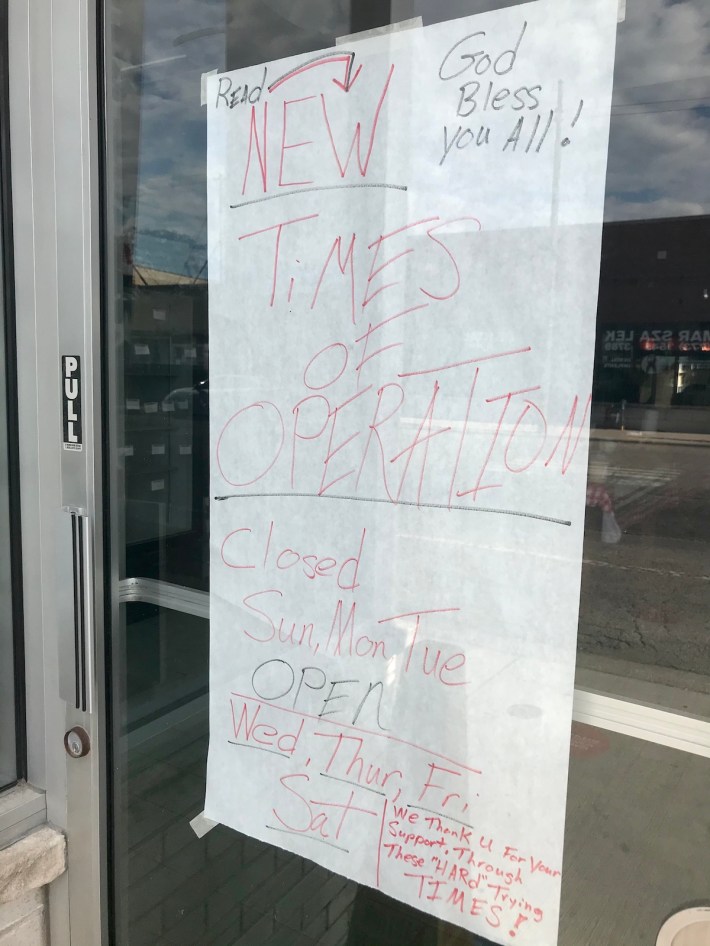 Read
NEW
God
Bless
you All!
TiMES
OF
OPERATION
PULL
Closed
Sun, Mon, Tue
OPEn
Wed, Thur, Fri.
Sat
We Thank U For Your
Support, Through
These "HARd" Trying
TIMES!